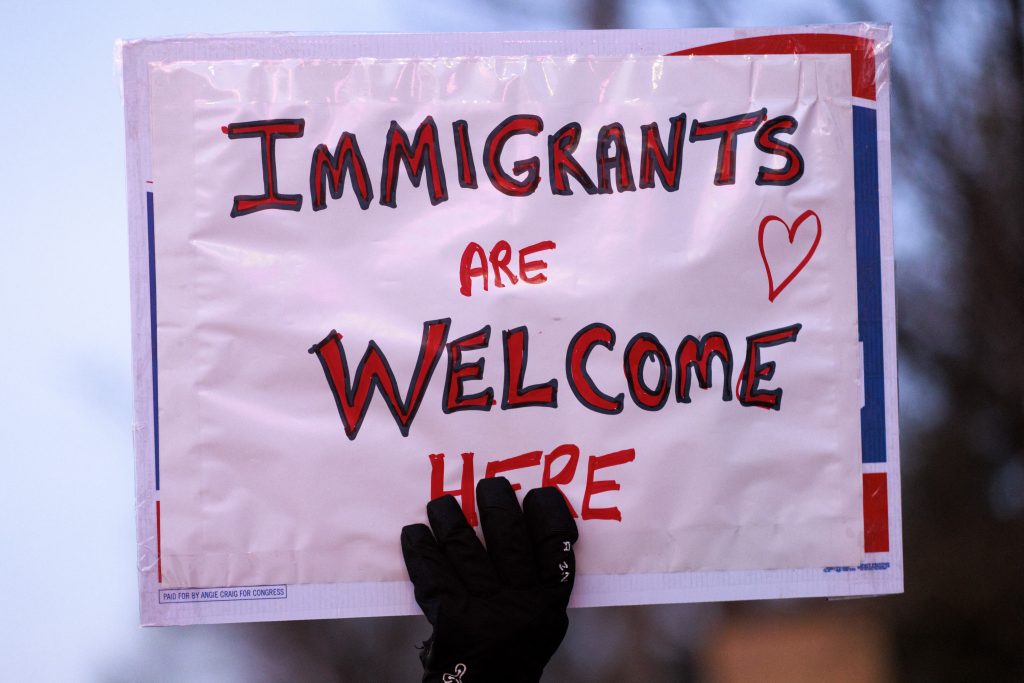 IMMIGRANTS
ARE
WELCOME
HERE
PAID FOR BY ANGIE CRAIG FOR CONGRESS